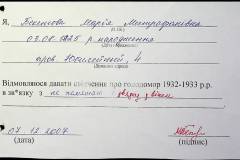 Я, Марія Митрофанівна
(П.І.Б.)
03.04.1925 р. народження
(Дата народження)
пров. Ювілейний, 4
(Домашня адреса)
Відмовляюся давати свідчення про голодомор 1932-1933 р.р.
в зв'язку з не пам'ятаю
07.12.2007
(дата) (підпис)